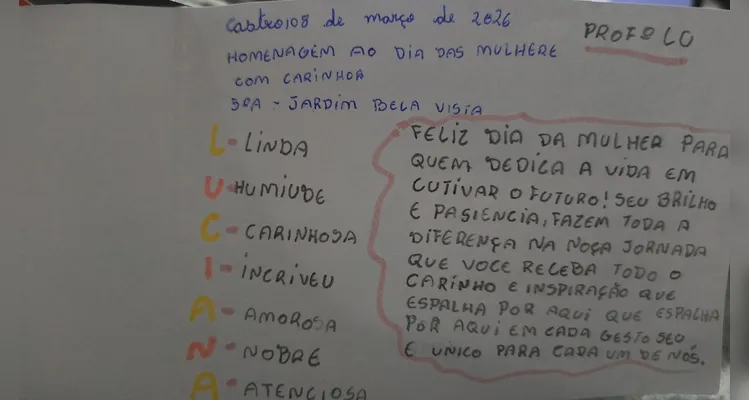 Castro,08 de março de 2026
PROFº LO
HOMENAGEM AO DIA DAS MULHERE
COM CARINHOA
SRA - JARDIM BELA VISTA
L - LINDA
U - HUMIUDE
C - CARINHOSA
I - INCRIVEU
A - AMOROSA
N - NOBRE
A - ATENCIOSA
FELIZ DIA DA MULHER PARA
QUEM DEDICA A VIDA EM
CUTIVAR O FUTURO! SEU BRILHO
E PASIENCIA, FAZEM TODA A
DIFERENÇA NA NOÇA JORNADA
QUE VOCE RECEBA TODO O
CARINHO E INSPIRAÇÃO QUE
ESPALHA POR AQUI QUE ESPALHA
POR AQUI EM CADA GESTO SEU
E UNICO PARA CADA UM DE NÓS.